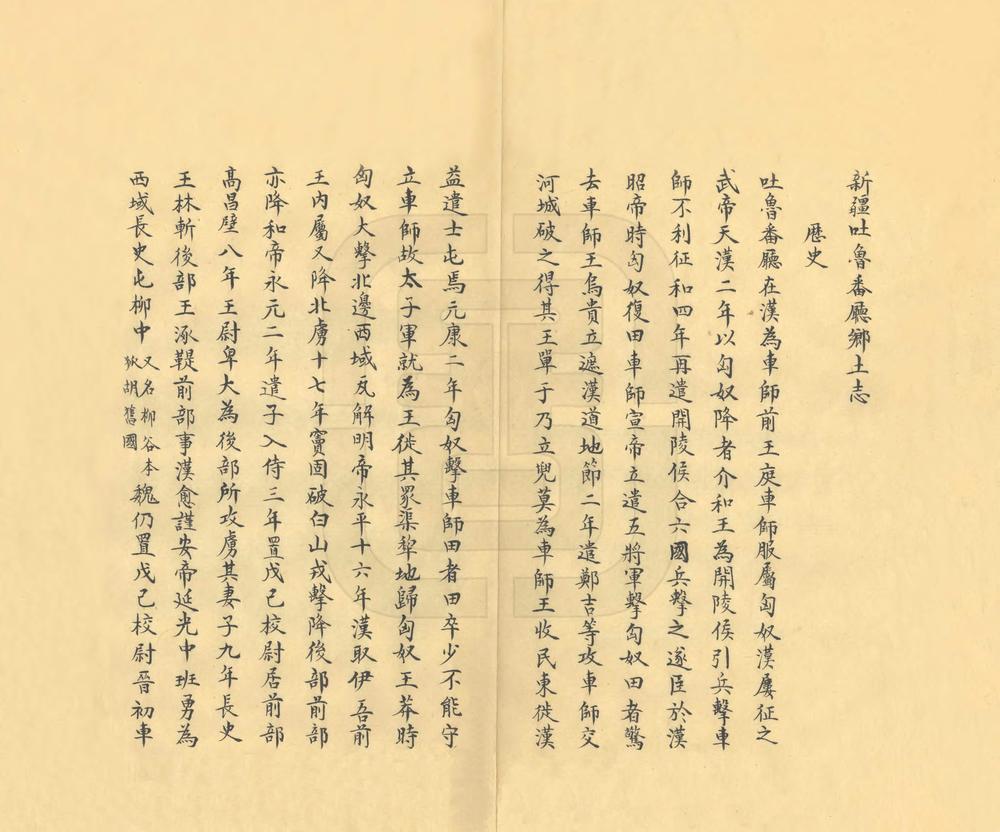 新疆吐魯番廳鄉土志
歷史
吐魯番廳在漢為車師前王庭車師服屬匈奴漢屢征之
武帝天漢二年以匈奴降者介和王為開陵侯引兵擊車
師不利征和四年再遣開陵侯合六國兵擊之遂臣於漢
昭帝時匈奴復田車師宣帝立遣五將軍擊匈奴田者驚
去車師王烏貴立遮漢道地節二年遣鄭吉等攻車師交
河城破之得其王單于乃立兜莫為車師王收民東徙漢
益遣士屯焉元康二年匈奴擊車師田者田卒少不能守
立車師故太子軍就為王徙其眾渠犂地歸匈奴王莽時
匈奴大擊北邊西域瓦解明帝永平十六年漢取伊吾前
王內屬又降北虜十七年竇固破白山戎擊降後部前部
亦降和帝永元二年遣子入侍三年置戊己校尉居前部
高昌壁八年王尉卑大為後部所攻虜其妻子九年長史
王林斬後部王涿鞮前部事漢愈謹安帝延光中班勇為
西域長史屯柳中又名柳谷本狄胡舊國魏仍置戊己校尉晉初車